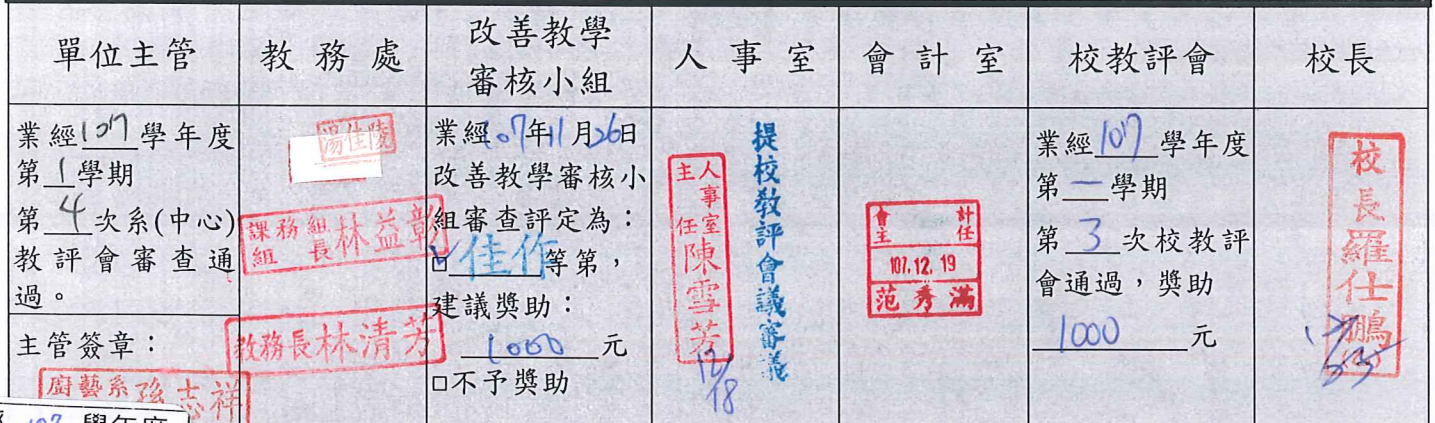 單位主管
教務處
改善教學
審核小組
人事室
會計室
校教評會
校長
業經107學年度
第1學期
第4次系(中心)
教評會審查通
過。
主管簽章：
廚藝系孫志祥
湯佳陵
課務組
組長林益彰
教務長林清芳
業經107年11月26日
改善教學審核小
組審查評定為：
□佳作等第，
建議獎助：
1000元
□不予獎助
人事室
主任陳雪芳
12/18
提校教評會議審議
會計
主任
107.12.19
范秀滿
業經107學年度
第一學期
第3次校教評
會通過，獎助
1000元
校長羅仕鵬
107學年度